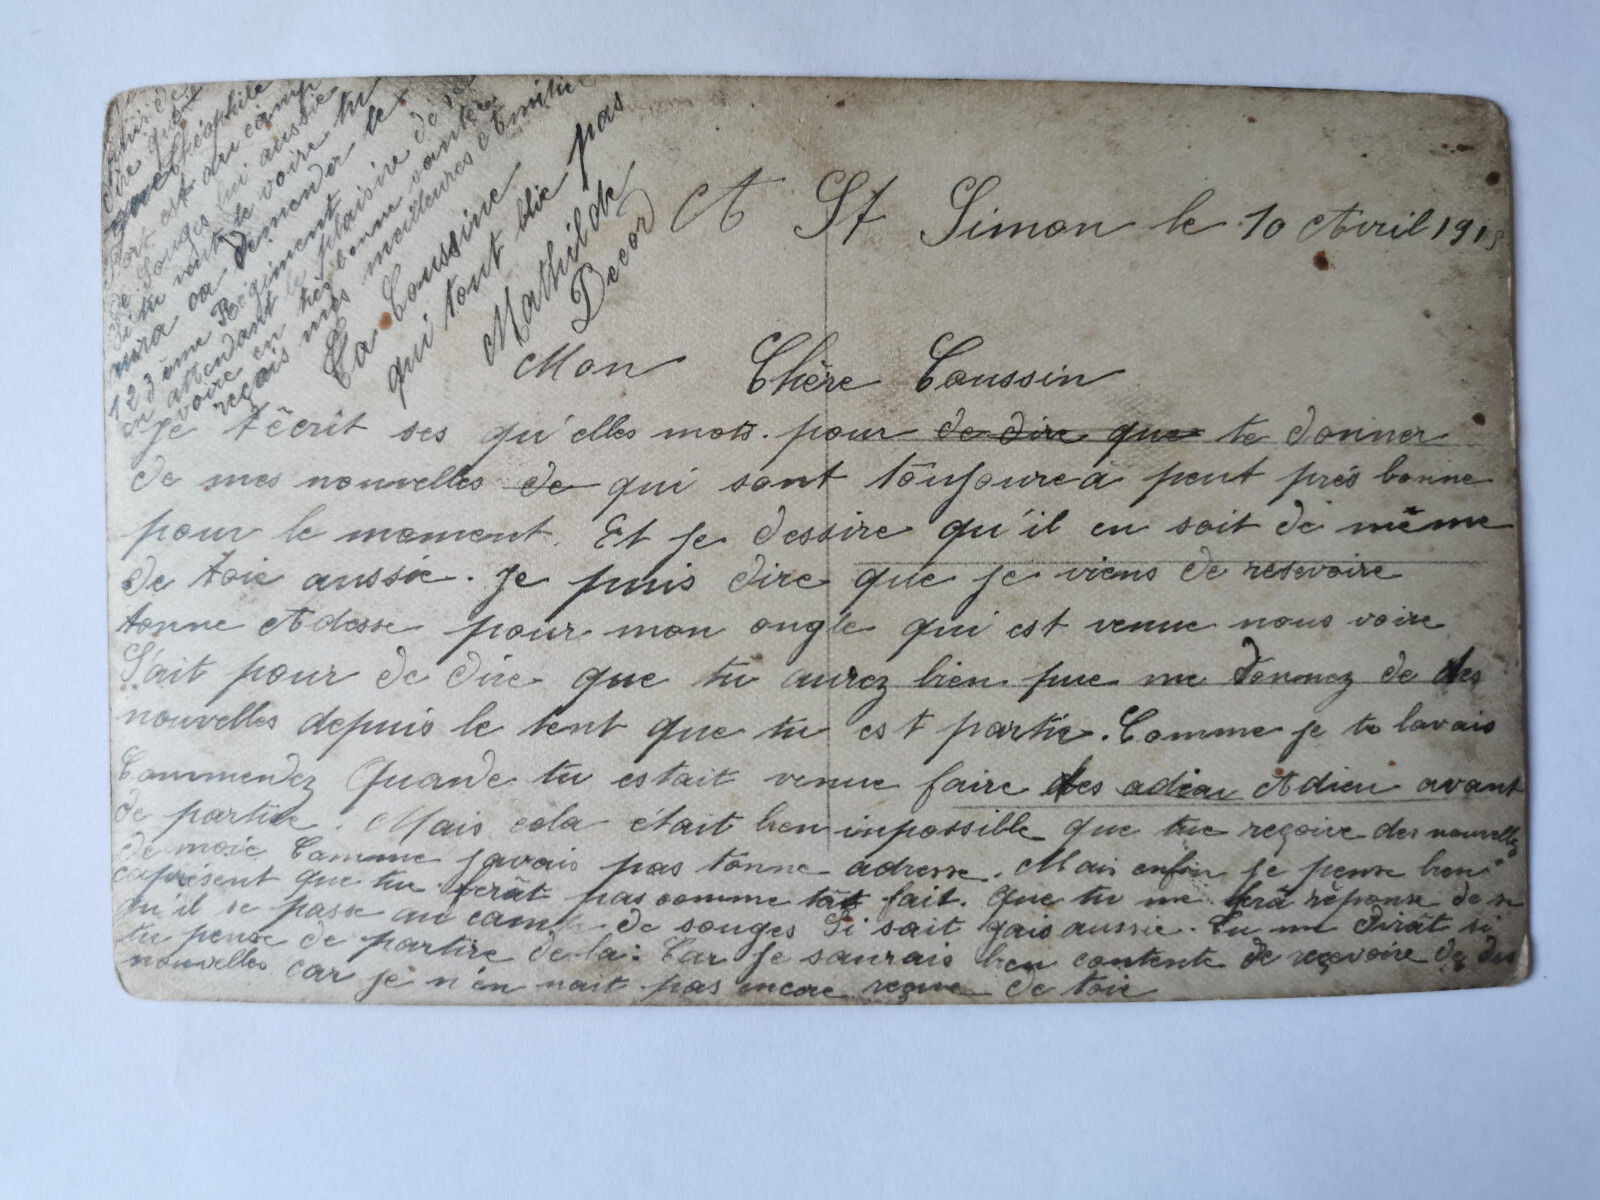 A St Simon le 10 Avril 1915
Mon Chère Coussin
Je têcrit ses qu'elles mots pour de dire que te donner
de mes nouvelles de qui sont toujoure a peut près bonne
pour le moment. Et je dessire qu'il en soit de même
de toie aussie. Je puis dire que je viens de resevoire
tonne Adesse pour mon ongle qui est venue nous voire
S'ait pour de dire que tu aurez bien pue me donnez de des
nouvelles depuis le tent que tu est partie. Comme je te lavais
Commendez Quande tu estait venue faire des adieu Adieu avant
de partire. Mais cela était ben inpossible que tue reçoive des nouvelles
de moie Comme javais pas tonne adresse. Mais enfin je pense bien
caprésent que tu ferât pas comme tât fait. Que tu me ferâ réponse de se
qu'il se passe au camp de souges Si sait gais aussie. Tu me dirât si
tu pense de partire de la. Car je saurais ben contente de reçevoire de des
nouvelles car je n'en nait pas encore reçue de toie
dire que
Théophile
Sort est au camp
de Souges lui aussie
Si tu veut le voire tu
aura oa demender le
123 ême Régiment
en attendant le plaisire de te
voire en très bonne santée
reçais mes meilleures Amitier
Ta Coussine
qui tout blie pas
Mathilde
Decor